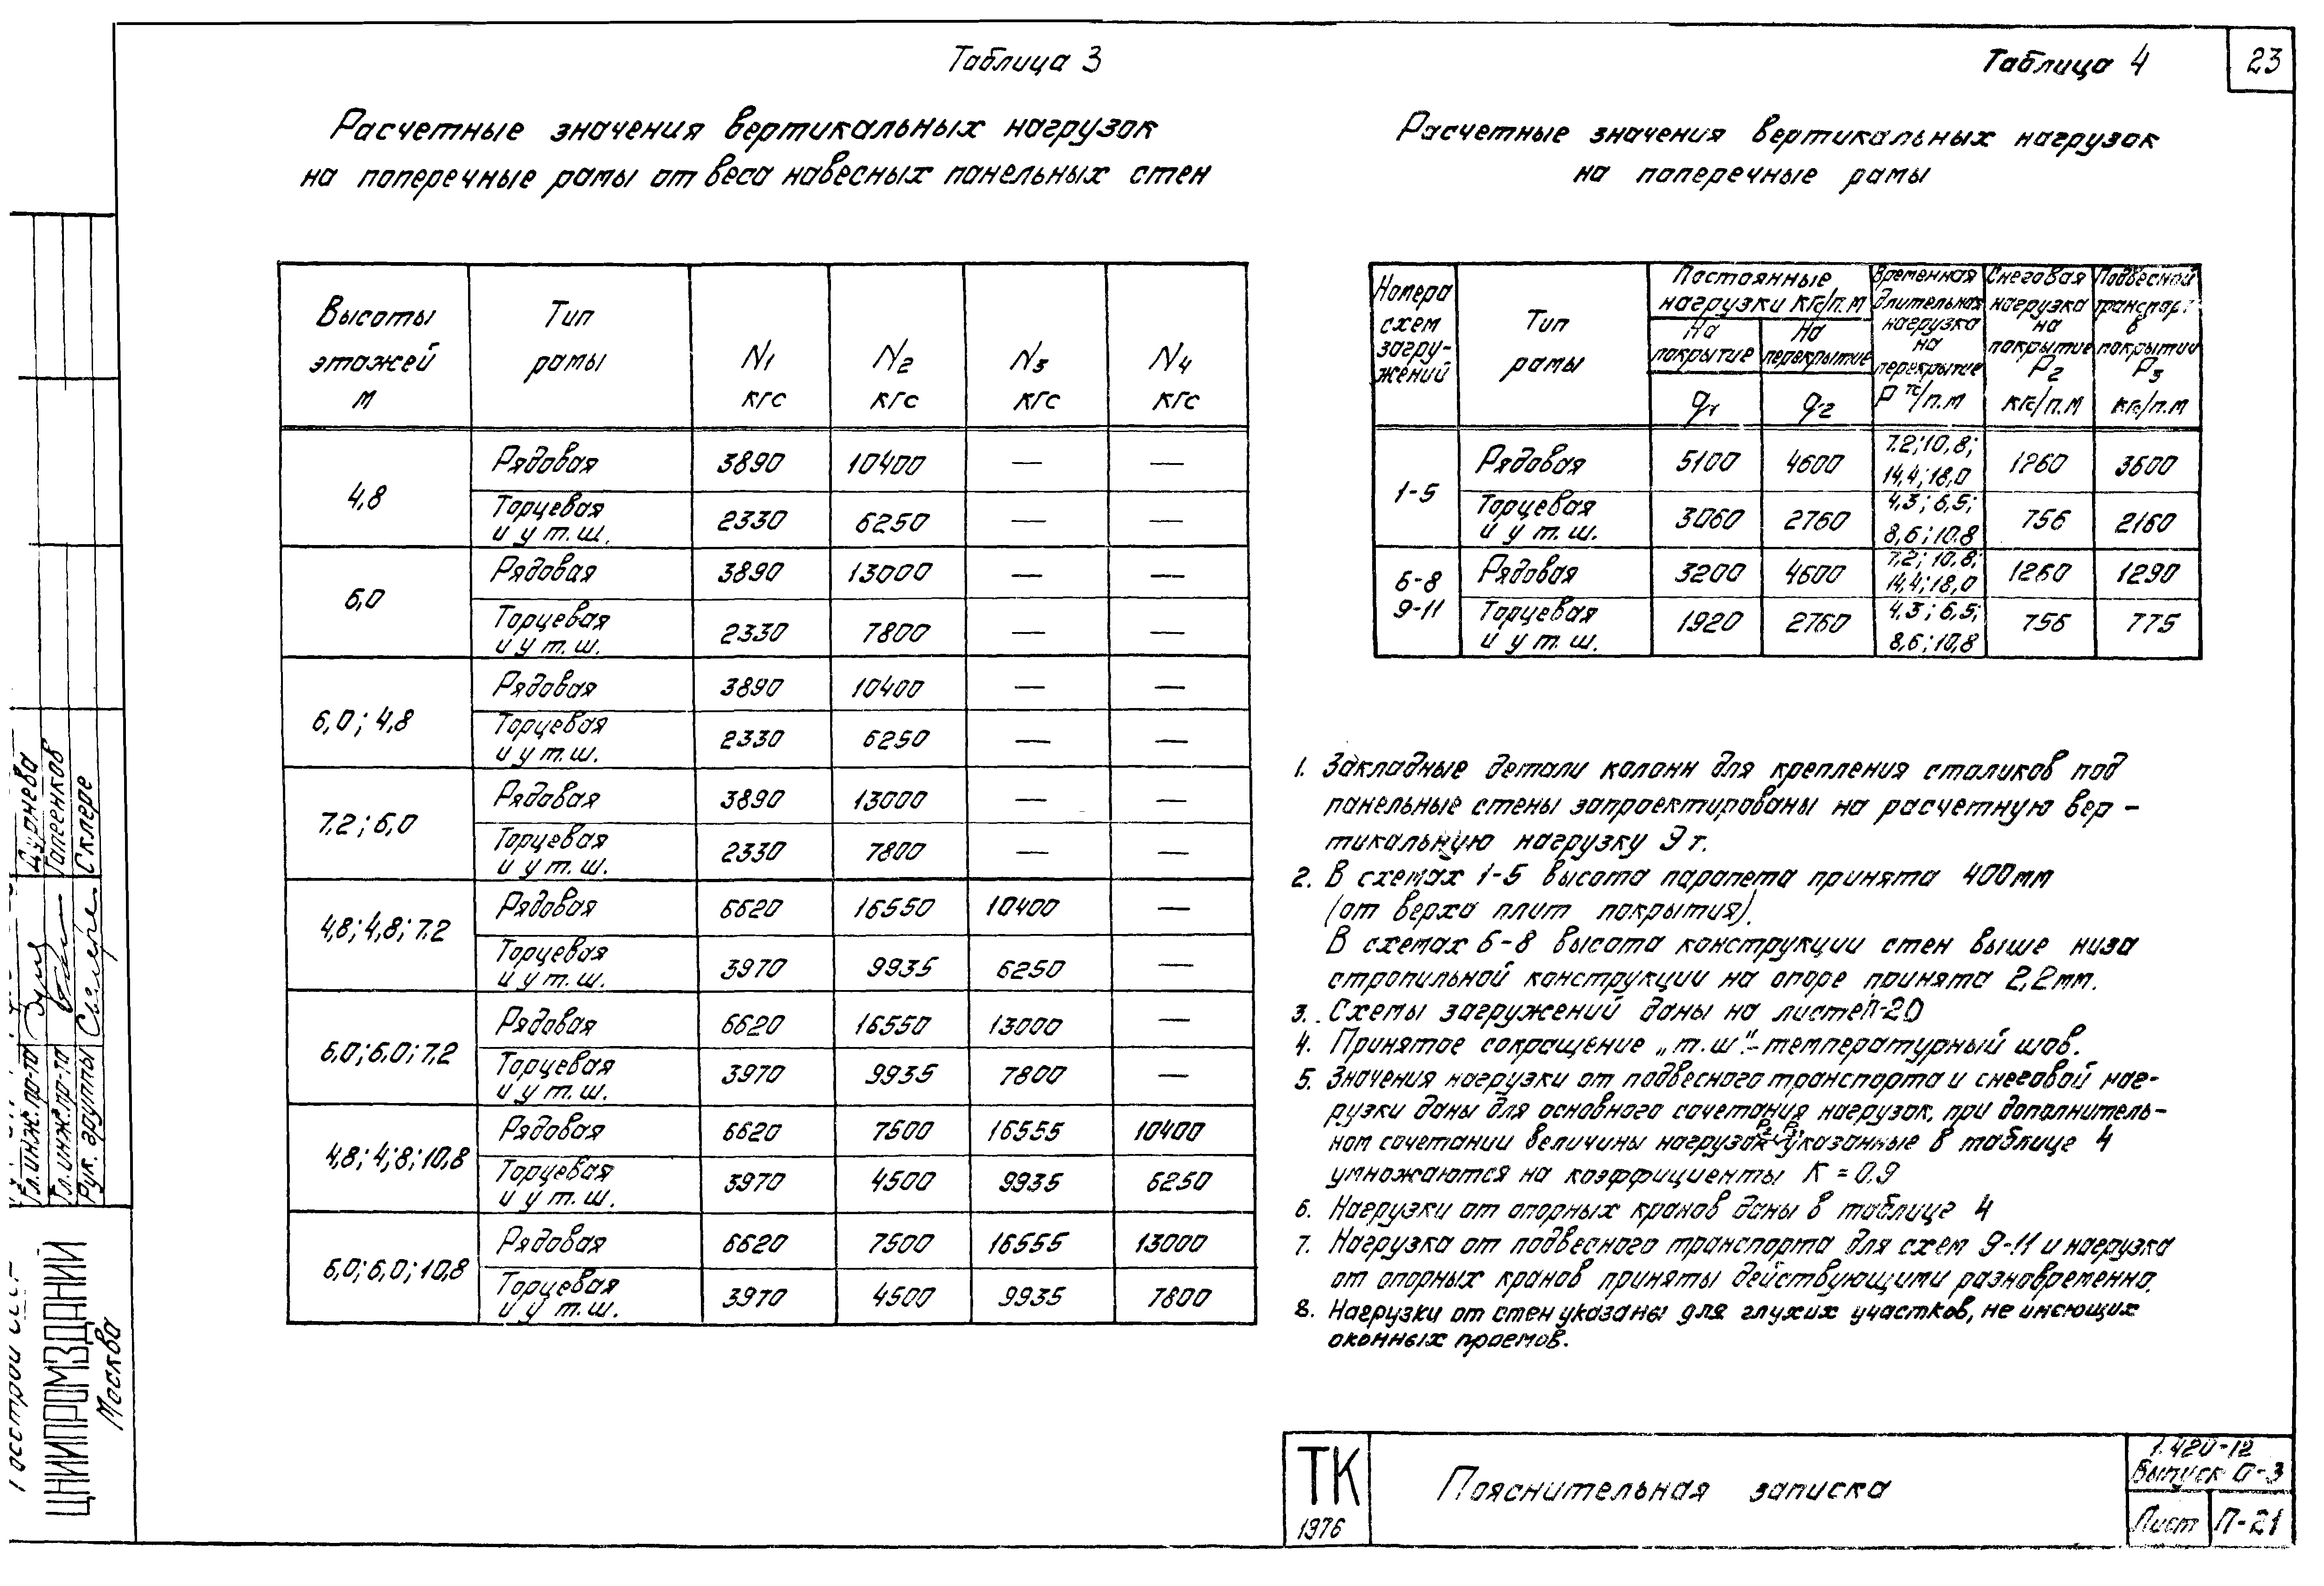 23
Таблица 3
Расчетные значения вертикальных нагрузок
на поперечные рамы от веса навесных панельных стен
Высоты этажей м | Тип рамы | N1 кгс | N2 кгс | N3 кгс | N4 кгс
4,8 | Рядовая | 3890 | 10400 | — | —
Торцевая и у т.ш. | 2330 | 6250 | — | —
6,0 | Рядовая | 3890 | 13000 | — | —
Торцевая и у т.ш. | 2330 | 7800 | — | —
6,0; 4,8 | Рядовая | 3890 | 10400 | — | —
Торцевая и у т.ш. | 2330 | 6250 | — | —
7.2; 6,0 | Рядовая | 3890 | 13000 | — | —
Торцевая и у т.ш. | 2330 | 7800 | — | —
4,8; 4,8; 7.2 | Рядовая | 6620 | 16550 | 10400 | —
Торцевая и у т.ш. | 3970 | 9935 | 6250 | —
6,0; 6,0; 7,2 | Рядовая | 6620 | 16550 | 13000 | —
Торцевая и у т.ш. | 3970 | 9935 | 7800 | —
4,8; 4;8; 10,8 | Рядовая | 6620 | 7500 | 16555 | 10400
Торцевая и у т.ш. | 3970 | 4500 | 9935 | 6250
6,0; 6,0; 10,8 | Рядовая | 6620 | 7500 | 16555 | 13000
Торцевая и у т.ш. | 3970 | 4500 | 9935 | 7800
Таблица 4
Расчетные значения вертикальных нагрузок
на поперечные рамы
Номера схем загружений | Тип рамы | Постоянные нагрузки кгс/п.м | На покрытие q1 | На перекрытие q2 | Временная длительная нагрузка на перекрытие P тс/п.м | Снеговая нагрузка на покрытие P2 кгс/п.м | Подвесной транспорт в покрытии P3 кгс/п.м
1-5 | Рядовая | 5100 | 4600 | 7.2; 10,8; 14,4; 18,0 | 1260 | 3600
Торцевая и у т.ш. | 3060 | 2760 | 4,3; 6,5; 8,6; 10.8 | 756 | 2160
6-8 9-11 | Рядовая | 3200 | 4600 | 7,2; 10,8; 14,4; 18,0 | 1260 | 1290
Торцевая и у т.ш. | 1920 | 2760 | 4,3; 6,5; 8,6; 10,8 | 756 | 775
1. Закладные детали колонн для крепления столиков под
панельные стены запроектированы на расчетную вер-
тикальную нагрузку 9 т.
2. В схемах 1-5 высота парапета принята 400мм
(от верха плит покрытия).
В схемах 6-8 высота конструкции стен выше низа
стропильной конструкции на опоре принята 2,2мм.
3. Схемы загружений даны на листе П-20
4. Принятое сокращение „т.ш."-температурный шов.
5. Значения нагрузки от подвесного транспорта и снеговой наг-
рузки даны для основного сочетания нагрузок, при дополнитель-
ном сочетании величины нагрузок P2, P3 указанные в таблице 4
умножаются на коэффициенты К = 0.9
6. Нагрузки от опорных кранов даны в таблице 4
7. Нагрузка от подвесного транспорта для схем 9-11 и нагрузка
от опорных кранов приняты действующими разновременно.
8. Нагрузки от стен указаны для глухих участков, не имеющих
оконных проемов.
Гл.инж.пр-та
Гл.инж.пр-та
Рук. группы
Гапеенков
Склере
ЦНИИПРОМЗДАНИЙ
Москва
ТК
1976
Пояснительная записка
1.420-12
Выпуск 0-3
Лист П-21